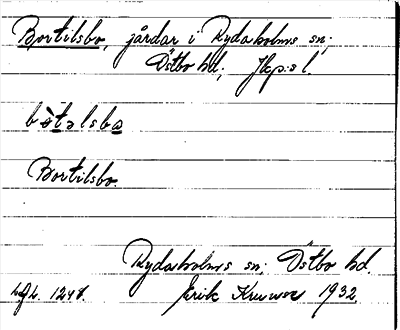 Bortilsbo, gårdar i Rydaholms sn;
Östbo hd, Jkp:s l.
bòtəlsba
Bortilsbo.
Rydaholms sn; Östbo hd.
Erik 1932